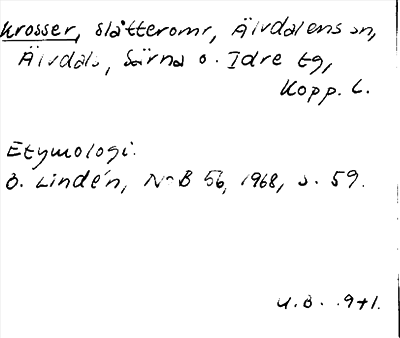 Krosser, slåtteromr, Älvdalens sn,
Älvdals, Särna o. Idre tg,
Kopp. L.
Etymologi.
B. Lindén, NoB 56, 1968, s. 59.
U.B.